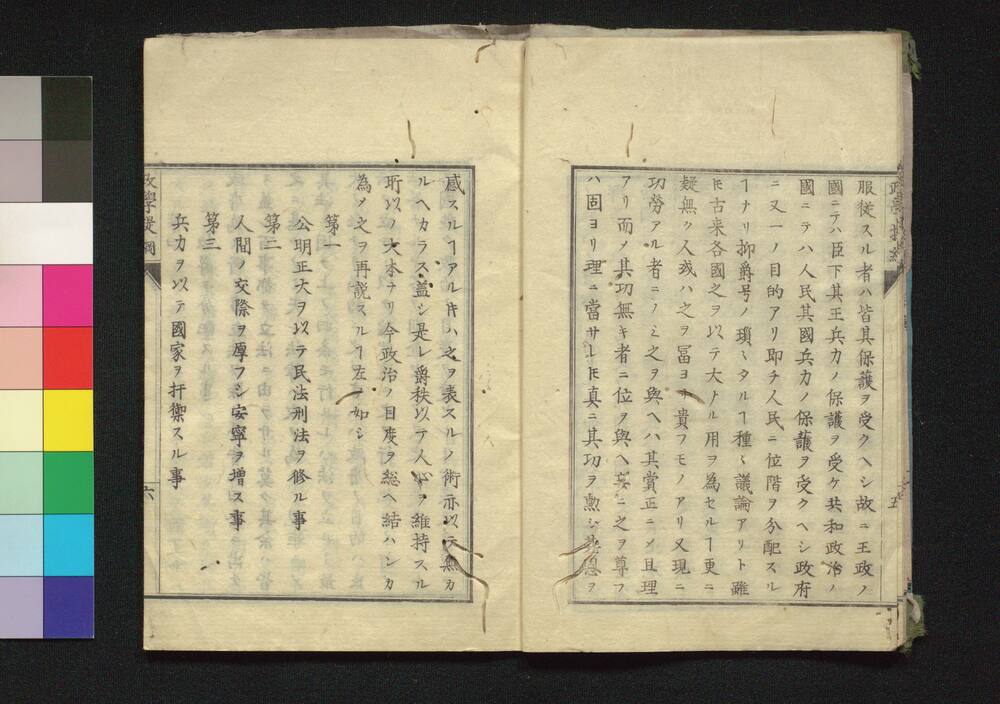 服従スル者ハ皆其保護ヲ受クヘシ故ニ王政ノ
國ニテハ臣下其王兵力ノ保護ヲ受ケ共和政治ノ
國ニテハ人民其國兵力ノ保護ヲ受クヘシ政府
ニ又一ノ目的アリ即チ人民ニ位階ヲ分配スル
ヿナリ抑爵号ノ瑣〻タルヿ種〻議論アリト雖
𪜈古来各國之ヲ以テ大ナル用ヲ為セルヿ更ニ
疑無ク人或ハ之ヲ冨ヨリ貴フモノアリ又現ニ
功勞アル者ニノミ之ヲ與ヘハ其賞正ニ〆且理
アリ而〆其功無キ者ニ位ヲ與ヘ妄ニ之ヲ尊フ
ハ固ヨリ理ニ當サレ𪜈真ニ其功ヲ勲シ其恩ヲ
感スルヿアル𪜈ハ之ヲ表スルノ術亦以テ無カ
ルヘカラス蓋シ是レ爵秩以テ人心ヲ維持スル
所以ノ大本ナリ今政治ノ目度ヲ総ヘ結ハンカ
為メ之ヲ再説スルヿ左ノ如シ
第一
公明正大ヲ以テ民法刑法ヲ修ル事
第二
人間ノ交際ヲ厚フシ安寧ヲ増ス事
第三
兵力ヲ以テ國家ヲ扞禦スル事
政學提綱
六